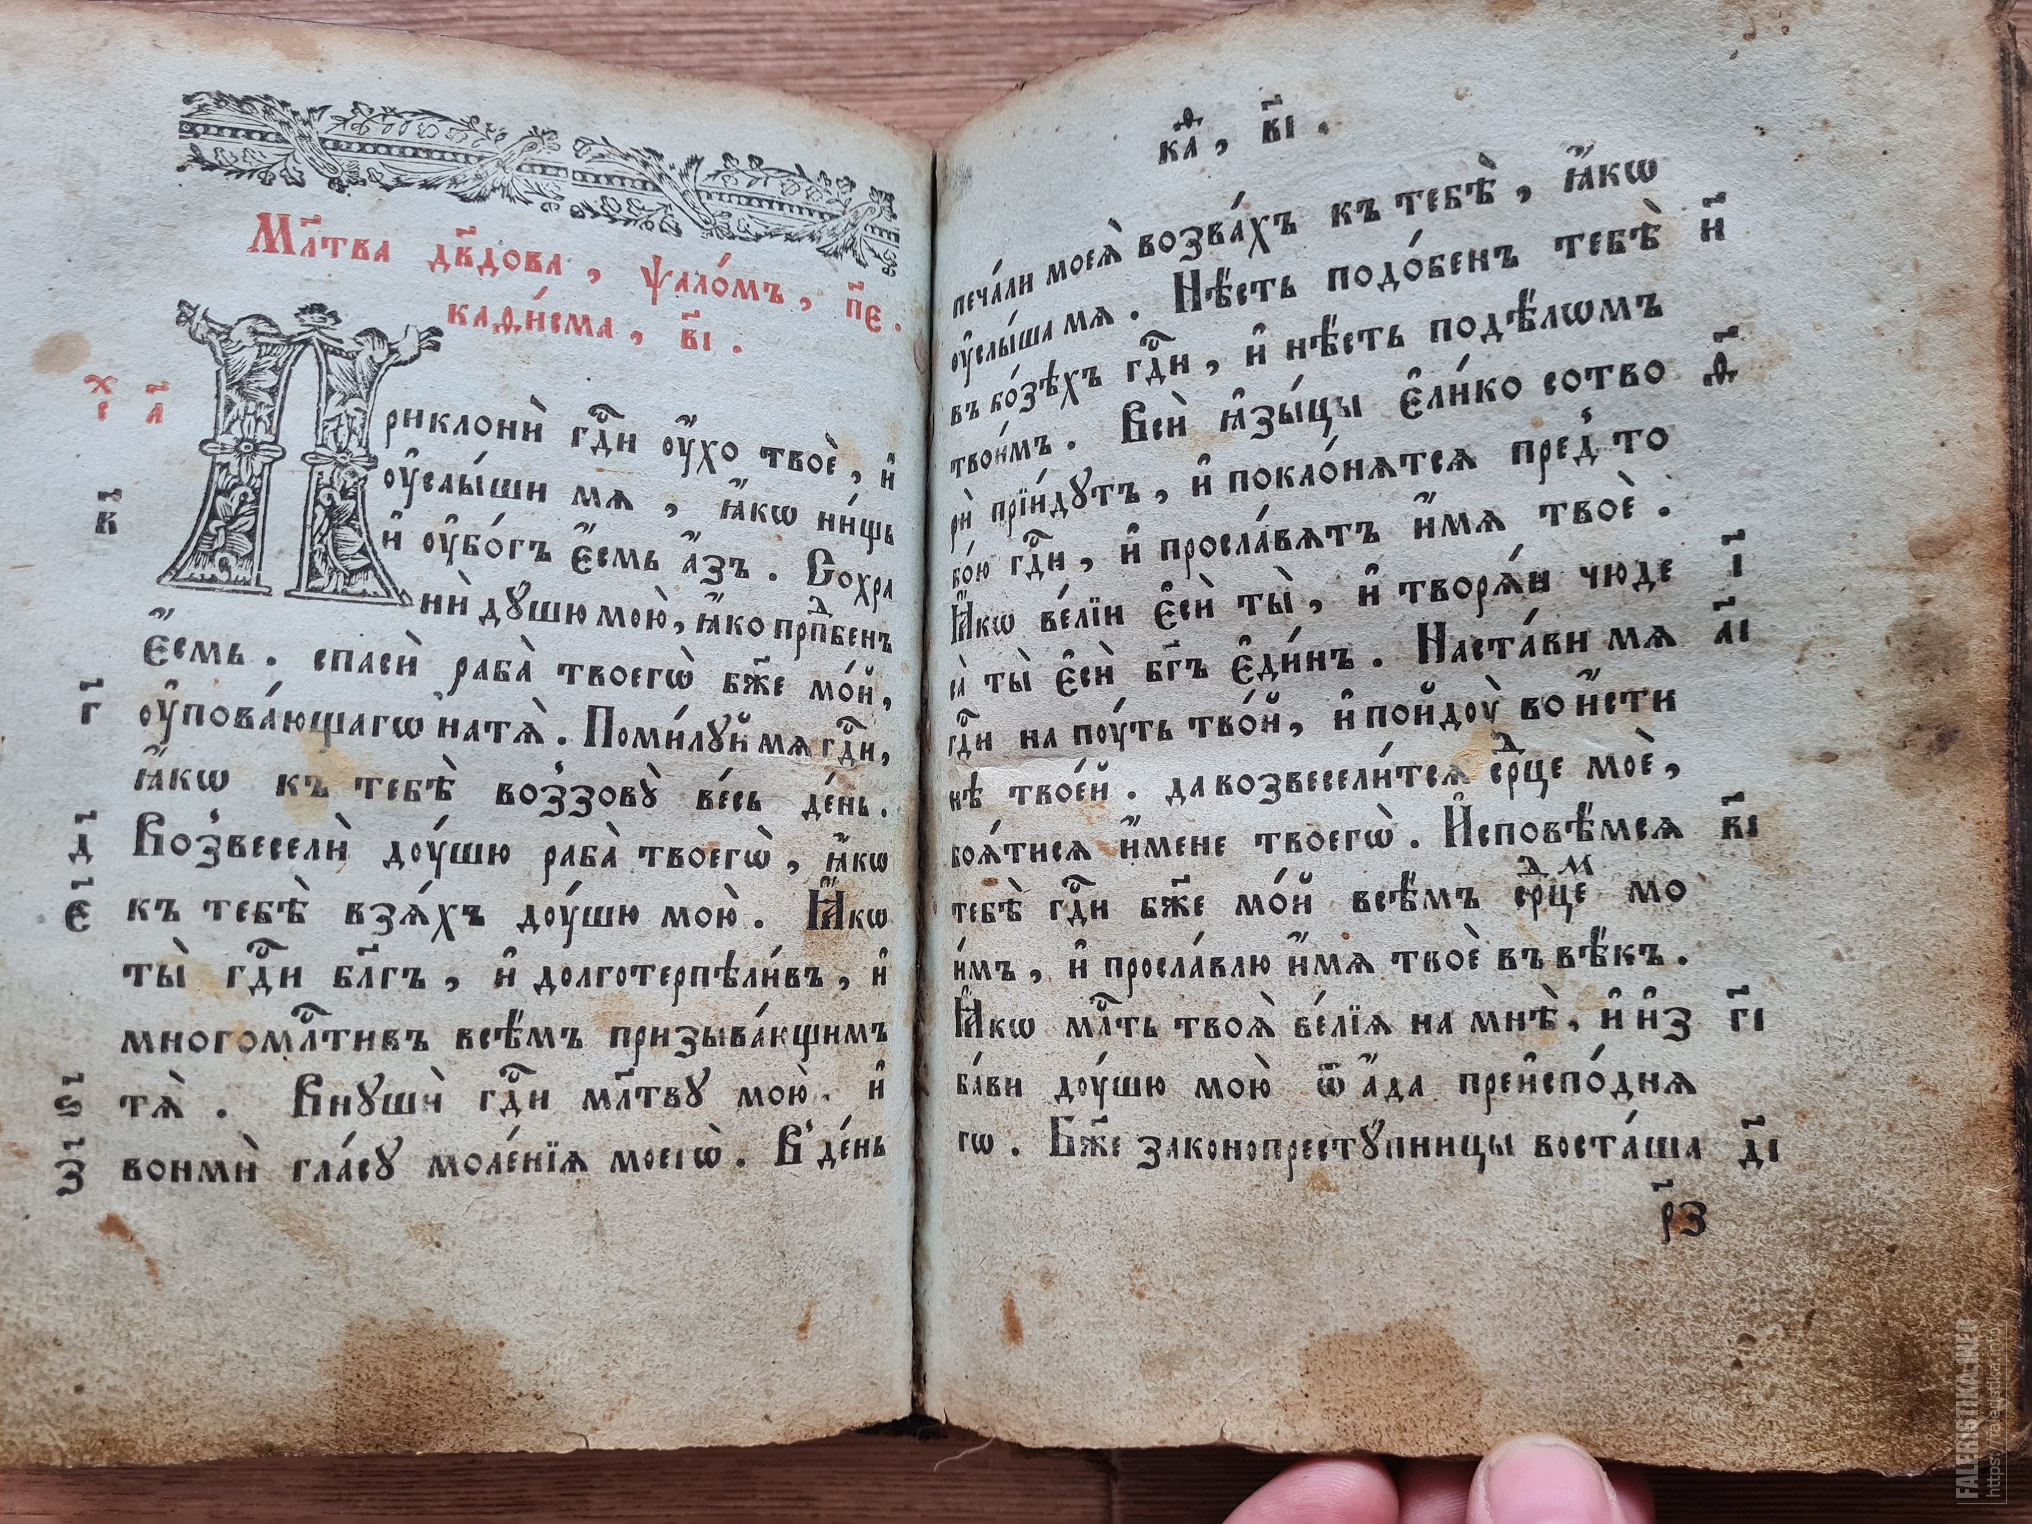 Мл҃тва дв҃дова, ѱало́мъ, п҃е.
каѳи́сма, в҃і.
а҃
Приклонѝ гдⷭ҇и ᲂу҆́хо твоѐ, и҆
ᲂу҆слы́ши мѧ, ꙗ҆́кѡ ни́щь
в҃
и҆ ᲂу҆бо́гъ є҆́смь а҆́зъ. Сохра
нѝ дꙋ́шю мою̀, ꙗ҆́ко прпⷣбенъ
є҆́смь. спасѝ раба̀ твоегѡ̀ бж҃е мо́й,
г҃
ᲂу҆пова́ющагѡ натѧ̀. Поми́лꙋй мѧ гдⷭ҇и,
ꙗ҆́кѡ къ тебѣ̀ воз̾зовꙋ̀ ве́сь де́нь.
д҃
Воз̾веселѝ доу́шю раба̀ твоегѡ̀, ꙗ҆́кѡ
е҃
къ тебѣ̀ взѧ́хъ доу́шю мою̀. Ꙗ҆́кѡ
ты̀ гдⷭ҇и бл҃гъ, и҆ долготерпѣли́въ, и҆
многомлⷭ҇тивъ всѣ̑мъ призыва́ющимъ
ѕ҃
тѧ̀. Внꙋшѝ гдⷭ҇и мл҃твꙋ мою̀. и҆
з҃
вонмѝ гла́сꙋ моле́нїѧ моегѡ̀. В̾ де́нь
каѳ, в҃і.
печа́ли моеѧ̀ возва́хъ къ тебѣ̀, ꙗ҆́кѡ
ᲂу҆слы́ша мѧ. Нѣ́сть подо́бенъ тебѣ̀ и҃
въ бо́зѣхъ гдⷭ҇и, и҆ нѣ́сть подѣ́лѡмъ
твои́мъ. Всѝ ꙗ҆зы́цы є҆ли́ко сотво ѳ҃
рѝ прїи́дутъ, и҆ покло́нѧтсѧ пред̾ то
бо́ю гдⷭ҇и, и҆ просла́вѧтъ и҆́мѧ твоѐ.
Ꙗ҆́кѡ ве́лїи є҆сѝ ты̀, и҆ творѧ́и чюде і҃
са̀ ты̀ є҆сѝ бг҃ъ є҆ди́нъ. Наста́ви мѧ а҃і
гдⷭ҇и на поу́ть тво́й, и҆ пойдоу̀ во и҆́сти
нѣ твое́й. да возвесели́тсѧ срⷣце моѐ,
боѧ́тисѧ и҆́мене твоегѡ̀. И҆сповѣ́мсѧ в҃і
тебѣ̀ гдⷭ҇и бж҃е мо́й всѣ́мъ срⷣцеⷨ мо
и́мъ, и҆ просла́влю и҆́мѧ твоѐ въ вѣ́къ.
Ꙗ҆́кѡ млⷭ҇ть твоѧ̀ ве́лїѧ на мнѣ̀, и҆ и҆з г҃і
ба́ви доу́шю мою̀ ѿ а҆́да преисподнѧ
гѡ. Бж҃е законопрестꙋ́пницы воста́ша д҃і
р҃з
FALERISTIKA.INFO
https://faleristika.info